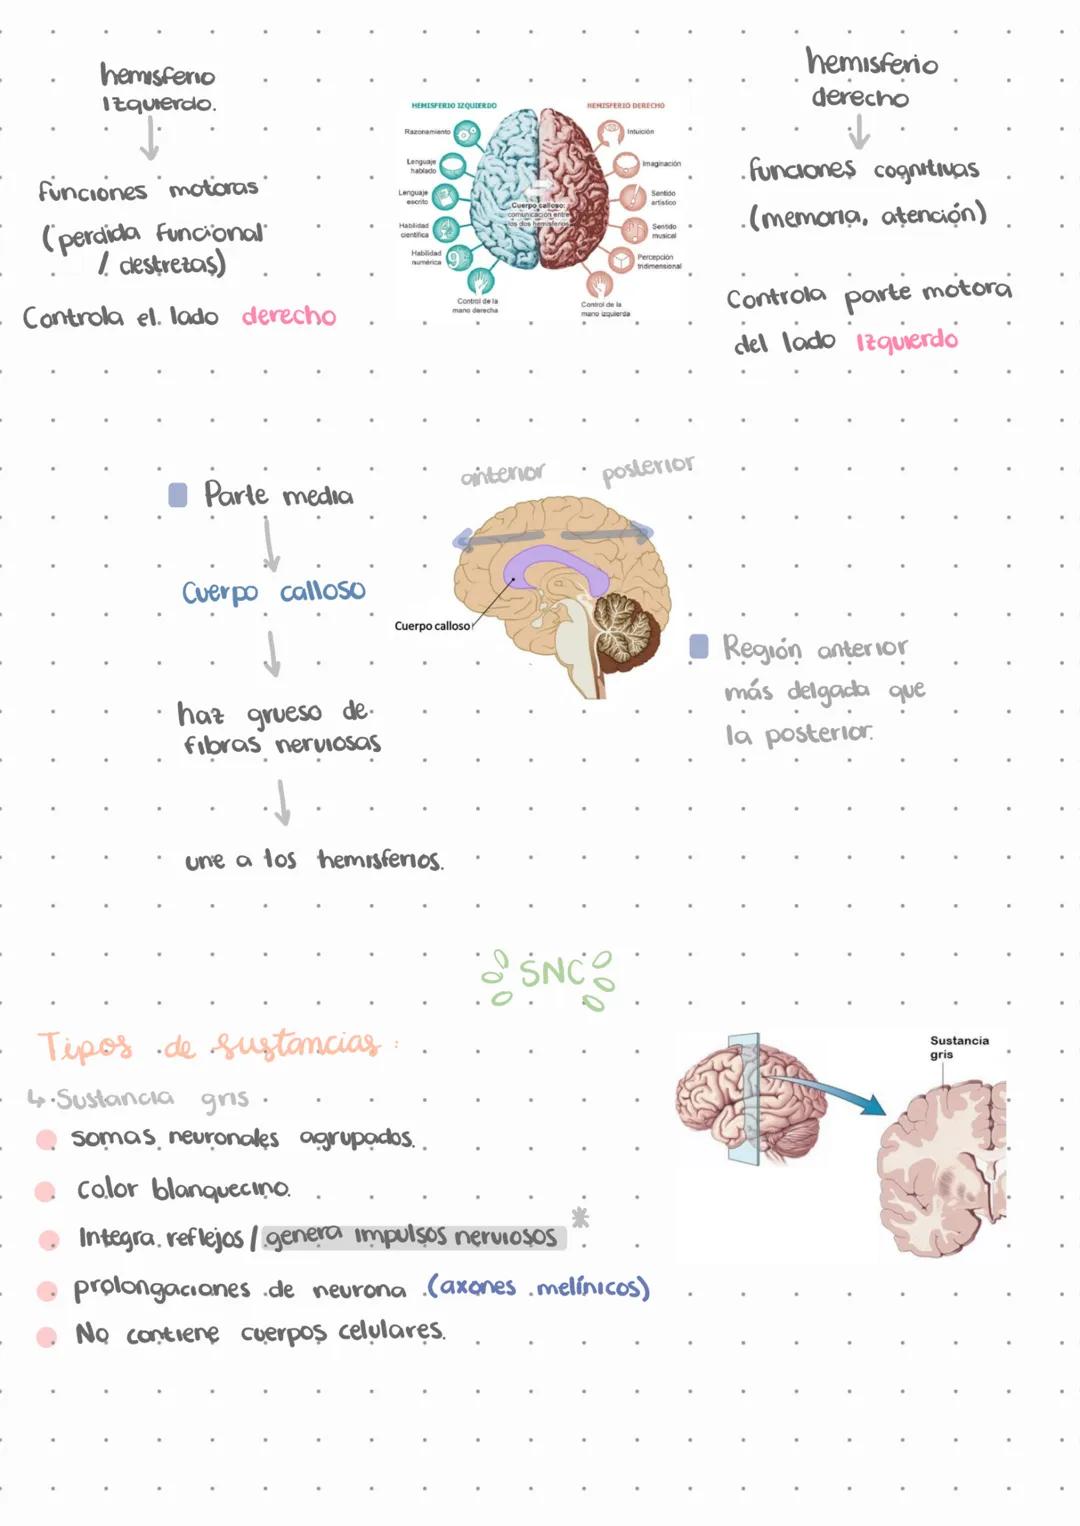 hemisferio
Izquierdo.
funciones motoras
(perdida funcional
/ destrezas)
Controla el lado derecho
HEMISFERIO IZQUIERDO
HEMISFERIO DERECHO
Razonamiento
Lenguaje
hablado
Lenguaje
escrito
Habilidad
científica
Habilidad
numérica
Control de la
mano derecha
Cuerpo calloso:
comunicación entre
los dos hemisferios
Intuición
Imaginación
Sentido
artístico
Sentido
musical
Percepción
tridimensional
Control de la
mano izquierda
hemisferio
derecho
funciones cognitivas
(memoria, atención)
Controla parte motora
del lado Izquierdo
Parte media
Cuerpo calloso
haz grueso de
fibras nerviosas
une a los hemisferios.
anterior posterior
Cuerpo calloso
Región anterior
más delgada que
la posterior.
SNC
Tipos de sustancias:
↳ Sustancia gris
somas neuronales agrupados.
Color blanquecino.
Integra reflejos / genera impulsos nerviosos *
prolongaciones de neurona (axones melínicos)
No contiene cuerpos celulares.
Sustancia
gris